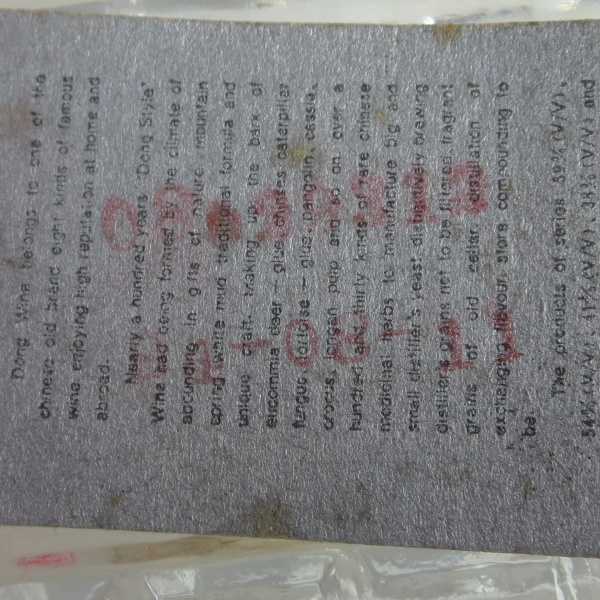 Dong Wine belongs to one of the
chinese old brand eight kinds of famous
wine enjoying high reputation at home and
abroad.
Nearly a hundred years 'Dong Style'
Wine had being formed by the climate of
abounding in gifts of nature, mountain
spring wate mug traditional formula and
unique craft. making up the bark of
eucommia deer — glue chinses caterpiller
fungus tortoise — glue, pangolin, cassia,
crocus, longan pulp and so on over a
hundred and thirty kinds of rare chinese
medicinal herbs to manufacture big and
small distiller's yeast distinctively brewing
distiller's grains not to be filtered fragrant
grains of old cellar distillation of
exchanging flavour store compounding to
be.
The products of series 59% (V/V),
54% (V/V), 41% (V/V), 38% (V/V) and